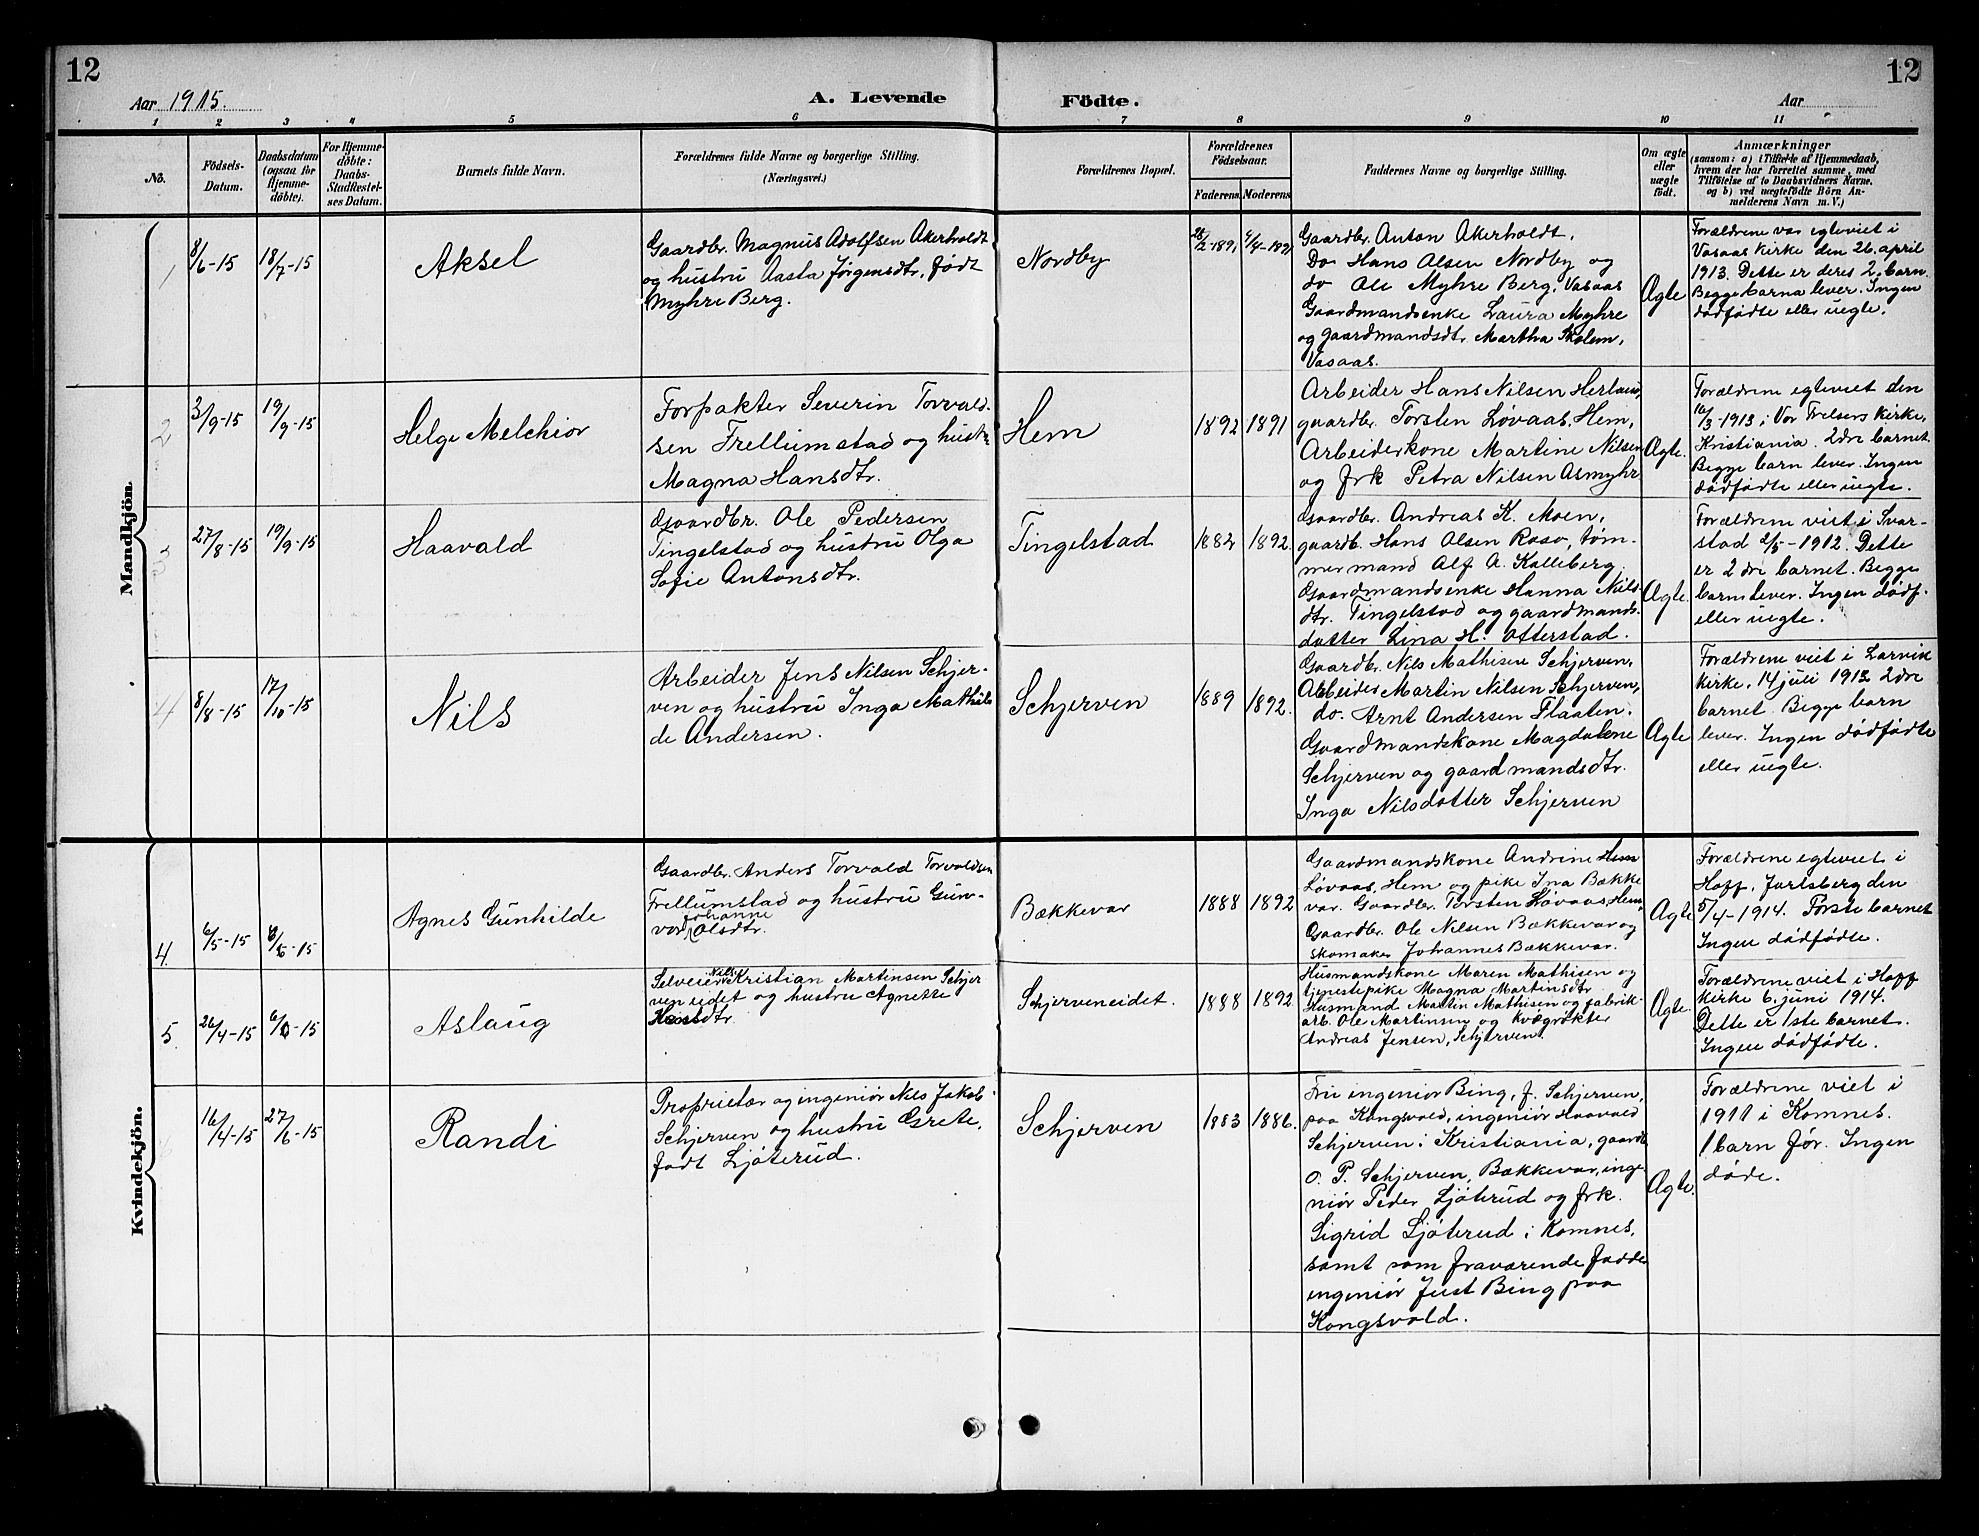 12
12
Aar 1915.
A. Levende
Födte.
Aar
1 2 3 4 5 6 7 8 9 10 11
No.
Födsels-
Datum.
Daabsdatum
(ogsaa for
Hjemme-
döbte).
For Hjemme-
döbte:
Daabs-
Stadfæstel-
ses Datum.
Barnets fulde Navn.
Forældrenes fulde Navne og borgerlige Stilling.
(Næringsvei.)
Forældrenes Bopæl.
Forældrenes
Födselsaar.
Faderens.
Moderens.
Faddernes Navne og borgerlige Stilling.
Om ægte
eller
uægte
födt.
Anmærkninger
(saasom: a) i Tilfælde af Hjemmedaab,
hvem der har forrettet samme, med
Tilföielse af to Daabsvidners Navne,
og b) ved uægtefödte Börn An-
melderens Navn m. V.)
Mandkjön
1
8/6-15
18/7-15
Aksel
Gaardbr. Magnus Adolfsen Akerholdt
og hustru Aasta Jørgensdtr, født
Myhre Berg.
Nordby
28/2-1891
4/4-1891
Gaardbr. Anton Akerholdt,
Do Hans Olsen Nordby og
do Ole Myhre Berg, Vasaas
Gaardmandsenke Laura Myhre
og gaardmandsdtr. Martha Skolem,
Vasaas.
Ægte
Forældrene var egteviet i
Vasaas Kirke den 26. april
1913. Dette er deres 2. barn.
Begge barna lever. Ingen
dødfødte eller uegte.
2
3/9-15
19/9-15
Helge Melchior
Forpakter Severin Torvald-
sen Trellumstad og hustr.
Magna Hansdtr.
Hem
1892
1891
Arbeider Hans Nilsen Herland,
gaardbr. Torsten Løvaas, Hem,
Arbeiderkone Martine Nilsen
og frk Petra Nilsen Asmyhr
Ægte.
Forældrene egteviet den
16/3-1913 i Vor Frelsers Kirke,
Kristiania. 2dre barnet.
Begge barn lever. Ingen
dødfødte eller uegte.
3
27/8-15
19/9-15
Haavald
Gaardbr. Ole Pedersen
Tingelstad og hustru Olga
Sofie Antonsdtr.
Tingelstad
1882
1892.
Gaardbr. Andreas K. Moen,
gaardb. Hans Olsen Rasø, tøm-
mermand Alf A. Kolleberg.
Gaardmandsenke Hanna Nils-
dtr. Tingelstad og gaardmands-
datter Lina H. Otterstad.
Ægte.
Forældrene viet i Svar-
stad 2/5-1912. Dette
er 2dre barnet. Begge
barn lever. Ingen dødf.
eller uegte.
4
8/8-15
17/10-15
Nils
Arbeider Jens Nilsen Schjer-
ven og hustru Inga Mathil-
de Andersen.
Schjerven
1889
1892.
Gaardbr. Nils Mathisen Schjerven,
Arbeider Martin Nilsen Schjerven,
do. Arnt Andersen Flaaten.
Gaardmandskone Magdalene
Schjerven og gaardmandsdtr.
Inga Nilsdatter Schjerven
Ægte
Forældrene viet i Larvik
Kirke, 14 juli 1912 2dre
barnet. Begge barn
lever. Ingen dødfødte
eller uegte.
Kvindekjön.
4.
6/5-15
6/6-15
Agnes Gunhilde
Gaardbr. Anders Torvald Torvaldsen
Trellumstad og hustru Gun-
vor Johanne Olsdtr.
Bækkevar
1888
1892
Gaardmandskone Andrine Hem
Løvaas, Hem og pike Ina Bække
var. Gaardbr. Torsten Løvaas, Hem,
Gaardbr. Ole Nilsen Bækkevar og
skomaker Johannes Bækkevar.
Ægte
Forældrene egteviet i
Hoff, Jarlsberg den
5/4-1914. Første barnet
Ingen dødfødte.
5
26/4-15
6/6-15
Aslaug
Selveier Nils Kristian Martinsen Schjer
veneidet og hustru Agnette
Hansdtr.
Schjerveneidet.
1888
1892
Husmandskone Maren Mathisen og
tjenestepike Magna Martinsdtr
Husmand Martin Mathisen og fabrik-
arb. Ole Martinsen og Kvægrøkter
Andreas Jensen, Schjerven.
Ægte.
Forældrene viet i Hoff
Kirke 6. juni 1914.
Dette er 1ste barnet.
Ingen dødfødte.
16/4-15
27/6-15
Randi
Proprietær og ingeniør Nils Jakob
Schjerven og hustru Grete,
født Ljøterud.
Schjerven
1883
1886.
Fru ingeniør Bing, f. Schjerven,
paa Kongsvold, ingeniør Haavald
Schjerven i Kristiania, gaardb.
O. P. Schjerven, Bækkevar, inge-
niør Peder Ljøterud og frk.
Sigrid Ljøterud i Komnes,
samt som fraværende fadder
ingeniør Just Bing paa
Kongsvold.
Ægte.
Forældrene viet i
1911 i Komnes.
1 barn før. Ingen
døde.